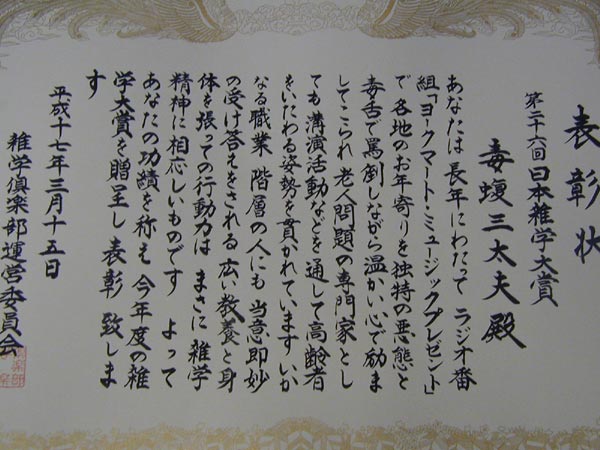 表彰状
第二十六回日本雑学大賞
毒蝮三太夫殿
あなたは 長年にわたって ラジオ番
組「ヨークマート・ミュージックプレゼント」
で 各地のお年寄りを独特の悪態と
毒舌で罵倒しながら温かい心で励ま
してこられ 老人問題の専門家とし
ても 講演活動などを通して高齢者
をいたわる姿勢を貫かれています いか
なる職業 階層の人にも 当意即妙
の受け答えをされる 広い教養と身
体を張っての行動力は まさに 雑学
精神に相応しいものです よって
あなたの功績を称え 今年度の雑
学大賞を贈呈し 表彰 致しま
す
平成十七年三月十五日
雑学倶楽部運営委員会